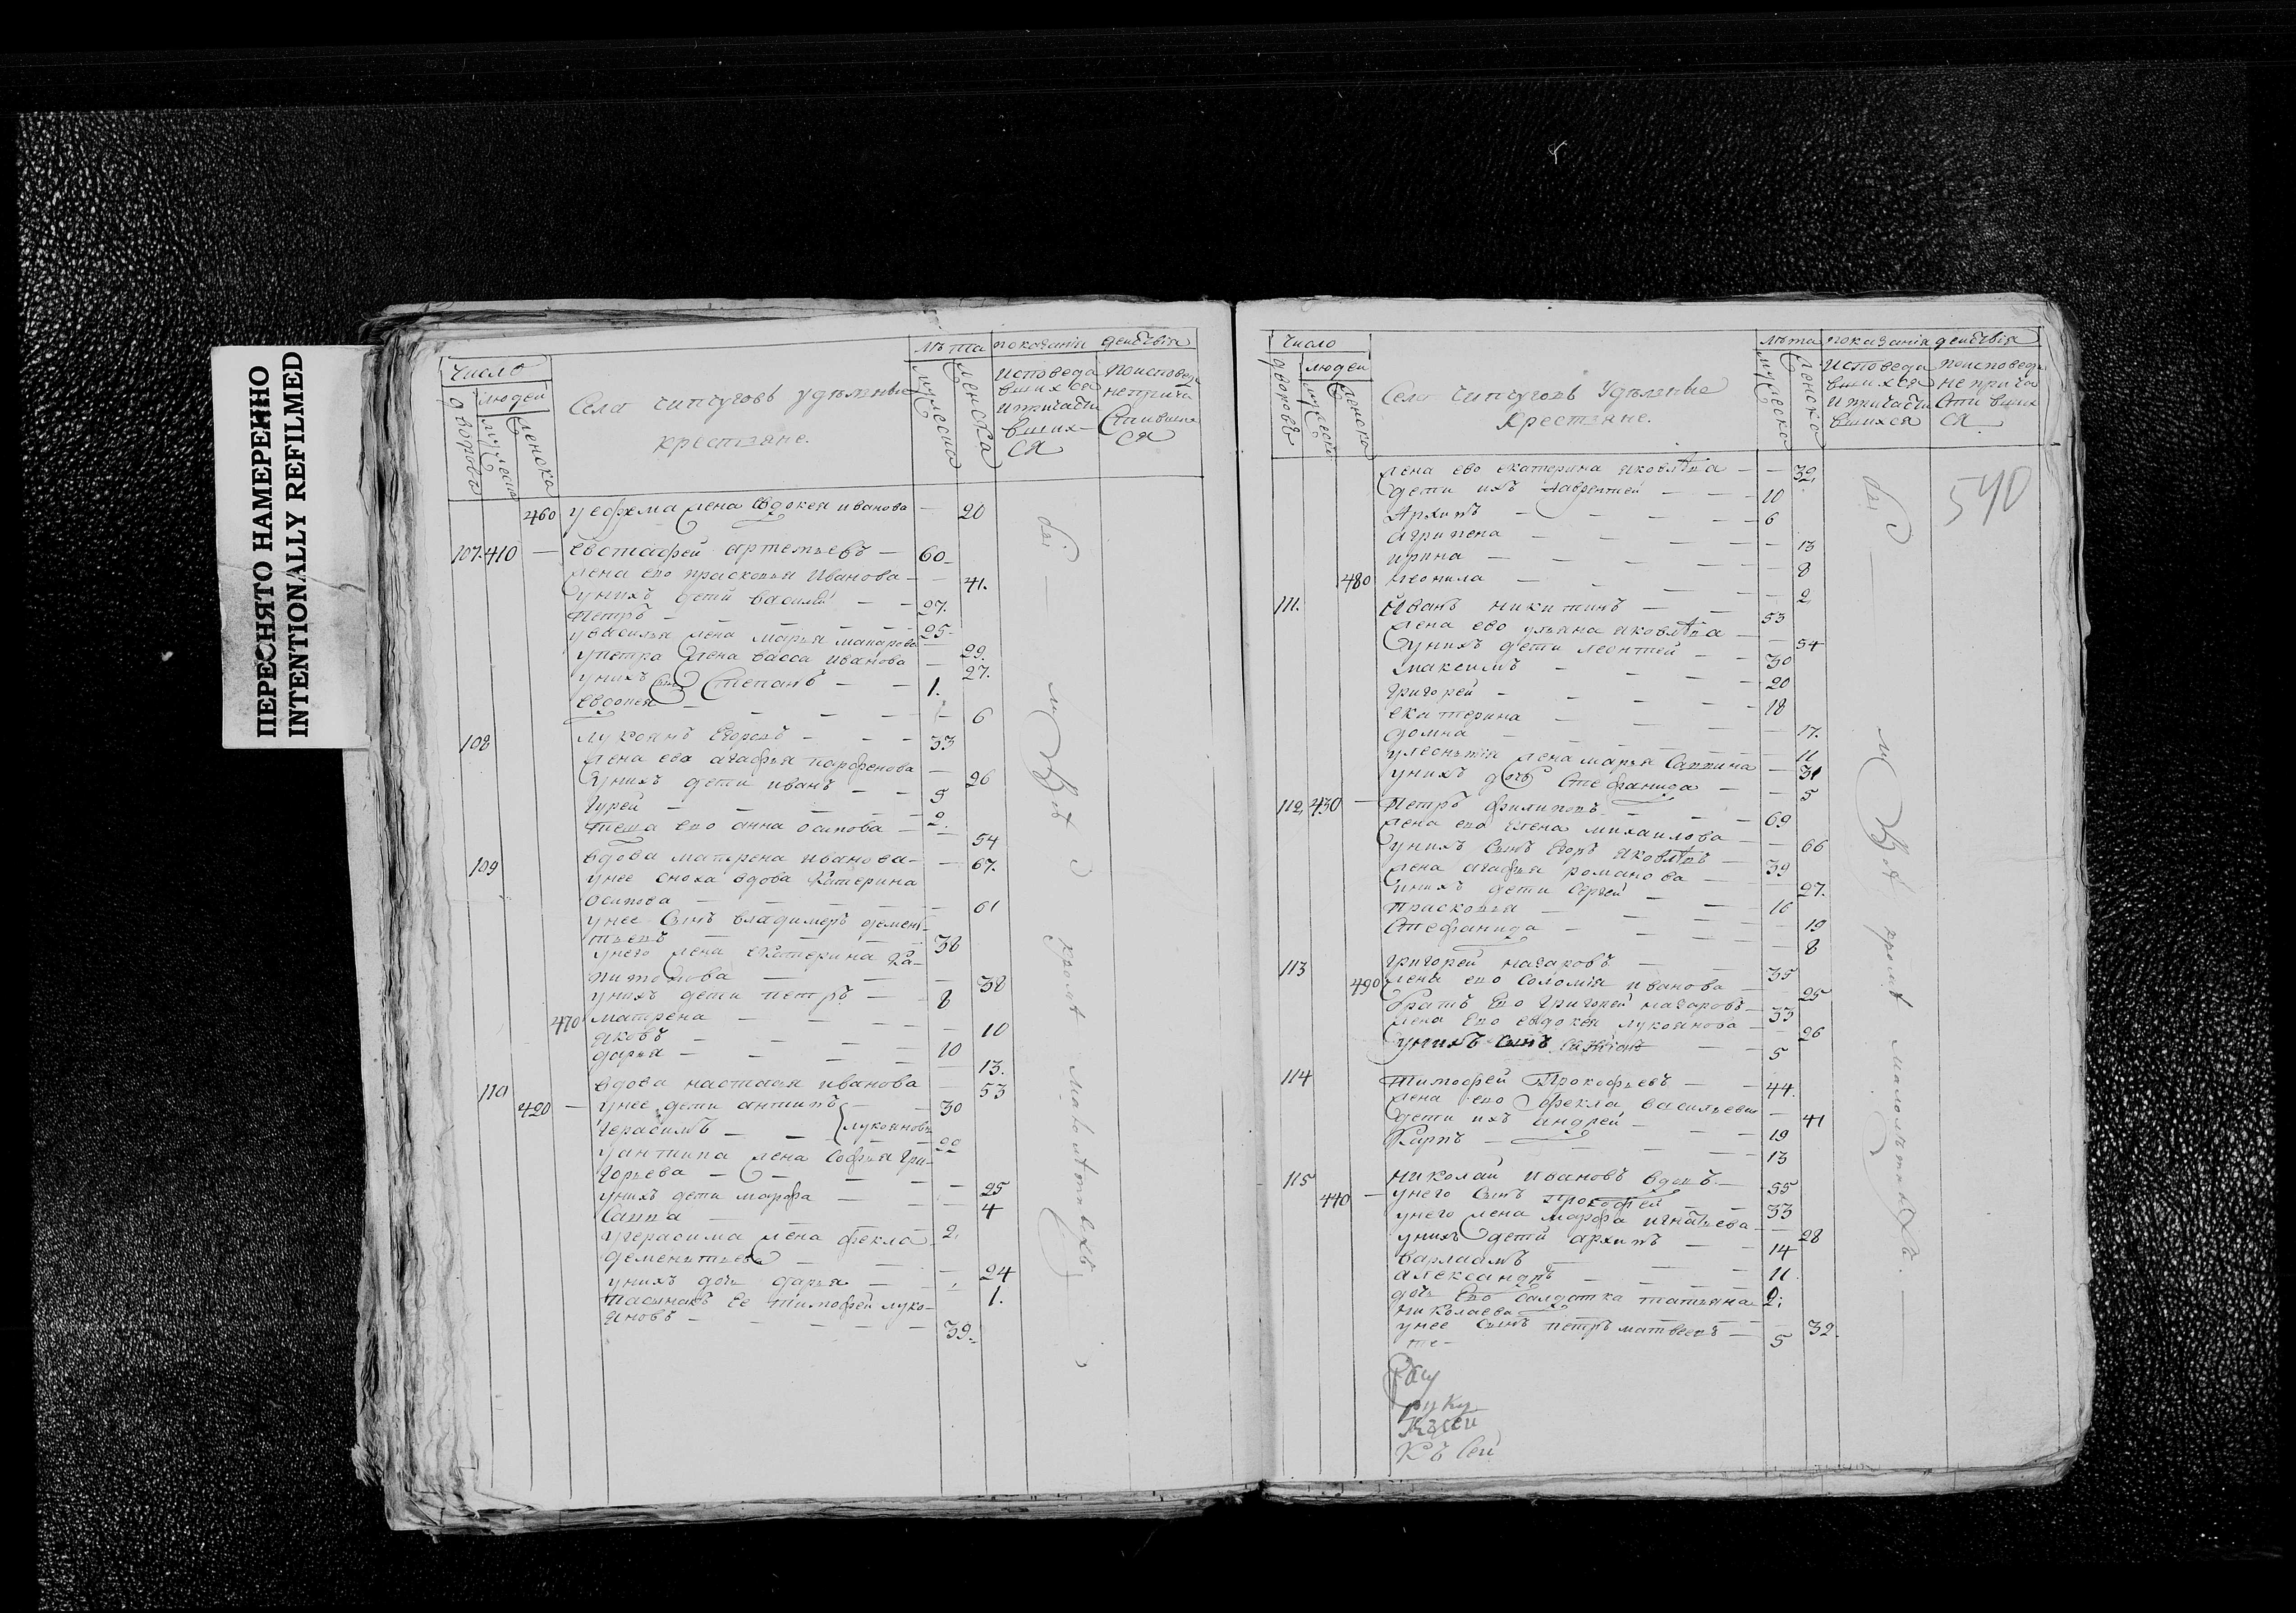 ПЕРЕСНЯТО НАМЕРЕННО
INTENTIONALLY REFILMED
Число
дворовъ
людей
мужеска
женска
Села чипчуговъ удѣльные
крестьяне.
лѣта
мужеска
женска
показаніи действія
исповеда
вшихся
и причасти
вших-
ся
поисповед
неприча
стивших
ся
460 уефрема жена евдокея иванова — 20
107. 410 — евстафей артемьевъ — 60
жена ево прасковья Иванова — — 41.
унихъ дети василей — — 27.
Петръ — — — — 25
увасилья жена марья макарова — 29.
упетра жена васса иванова — 27.
унихъ сынъ степанъ — — 1.
евдокея — — — — 6
108 лукоянъ Егоровъ — — 33
жена ево агафья парфенова — 26
унихъ дети иванъ — — 5
Гурей — — — — 2.
теща ево анна осипова — — 54
109 вдова матрена иванова — — 67.
унее сноха вдова Катерина
осипова — — — — 61
унее сынъ владимеръ демен-
тьевъ — — — 38
унего жена екатерина ка-
питонова — — — 38
унихъ дети петръ — — 8
470 матрена — — — — 10
яковъ — — — — 10
дарья — — — — 13.
110 вдова настасья иванова — 53
420 — унее дети антипъ — — 30
Герасимъ — — лукояновы 22
уантипа жена софья Гри-
горьева — — — — 25
унихъ дети марфа — — 4
Савва — — — 2.
угерасима жена фекла
дементьева — — — 24
унихъ дочь дарья — — 1.
пасынокъ ее тимофей луко-
яновъ — — — — 39.
всѣ — кромѣ малолѣтнихъ
Число
дворовъ
людей
мужеска
женска
Села чипчуговъ Удѣльные
Крестьяне.
лѣта
мужеска
женска
показанія действія
исповеда
вшихся
и причасти
вшихся
поисповед
неприча
стивших
ся
540
жена ево екатерина яковлева — — 32.
дети ихъ лаврентей — — — 10
Архипъ — — — — 6
агрипена — — — — 13
ирина — — — — 8
480 неонила — — — — 2
111. Иванъ никитинъ — — 53
жена ево ульяна яковлева — — 54
унихъ дети леонтей — — 30
максимъ — — — — 20
григорей — — — — 18
екатерина — — — — 17.
домна — — — — 11
улеонтія жена марья Саввина — 31
унихъ дочь стефанида — — 5
112. 430 — Петръ филиповъ — — 69
жена ево елена михаилова — — 66
унихъ сынъ егоръ яковлевъ — 39
жена агафья романова — — 27.
унихъ дети сергей — — 16
прасковья — — — — 19
стефанида — — — — 8
113 григорей назаровъ — — 35
490 жена ево соломія иванова — — 25
братъ ево григорей назаровъ — 33
жена ево евдокея лукоянова — — 26
унихъ сынъ — — 5
114 тимофей Прокофьевъ — — 44.
жена ево фекла васильева — 41
дети ихъ андрей — — — 19
Карпъ — — — 13
115 николай ивановъ вдовъ — 55
440 — унего сынъ прокофей — — 33
унего жена марфа игнатьева — 28
унихъ дети архипъ — — 14
варлаамъ — — — 11
александръ — — — 2.
дочь ево салдатка татьяна
николаева — — 32.
унее сынъ петръ матвеевъ — 5
всѣ — кромѣ малолѣтныхъ
руку
Къ сей